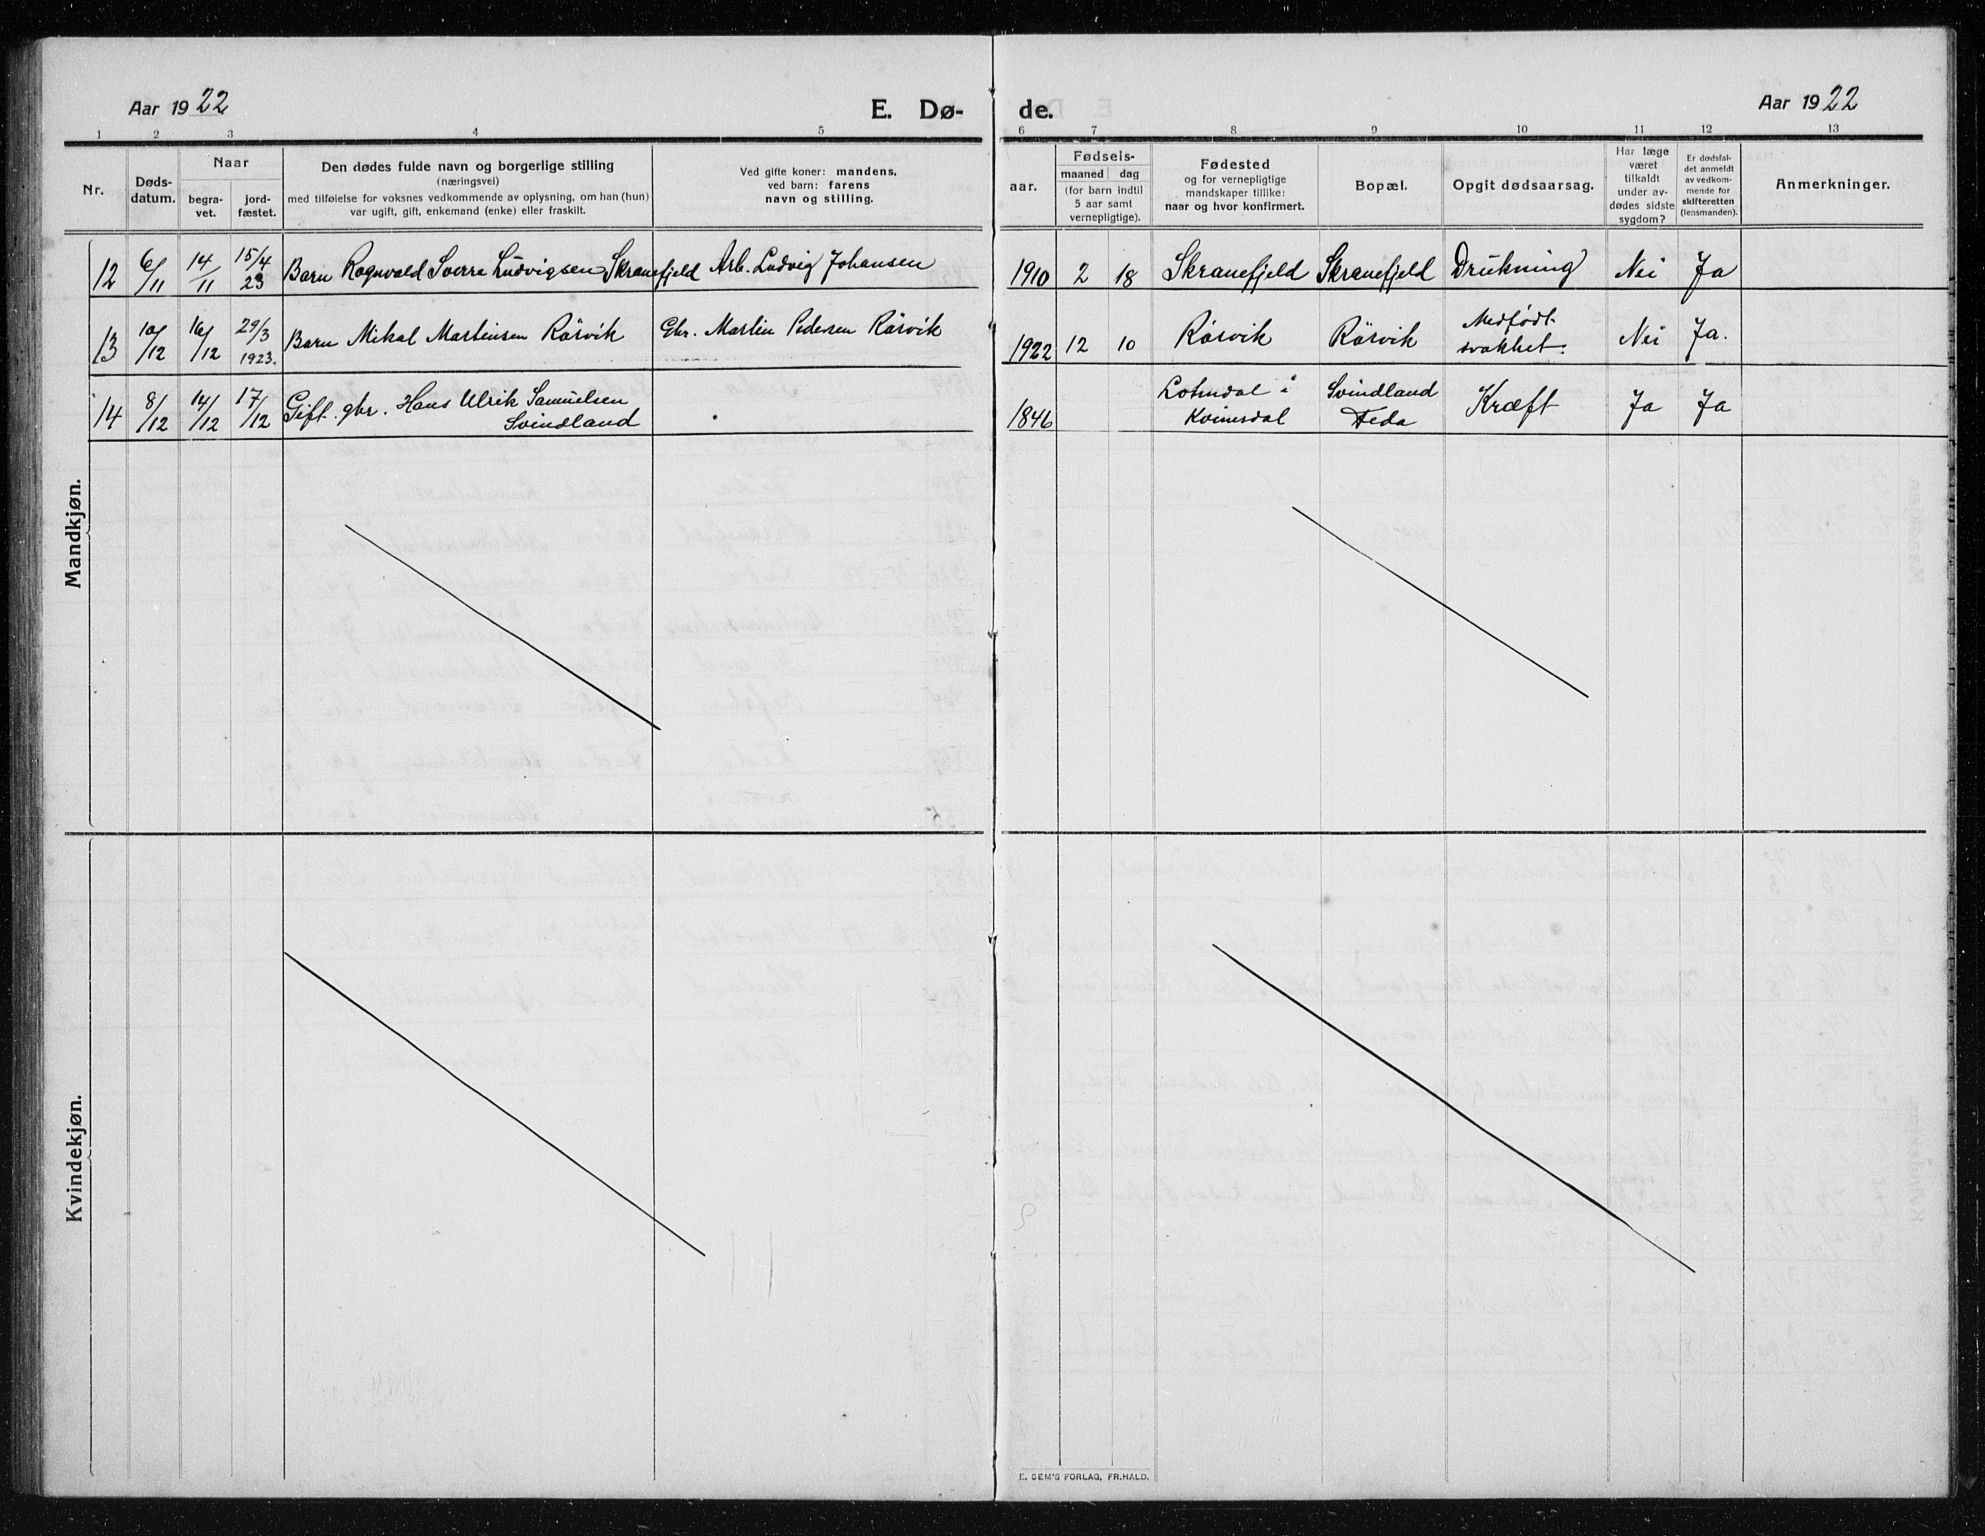 Aar 1922
E. Dø-
de.
Aar 1922
1 2 3 4 5 6 7 8 9 10 11 12 13
Nr.
Døds-
datum.
Naar
begra-
vet.
jord-
fæstet.
Den dødes fulde navn og borgerlige stilling
(næringsvei)
med tilføielse for voksnes vedkommende av oplysning, om han (hun)
var ugift, gift, enkemand (enke) eller fraskilt.
Ved gifte koner: mandens,
ved barn: farens
navn og stilling.
Fødsels-
aar.
maaned dag
(for barn indtil
5 aar samt
vernepligtige).
Fødested
og for vernepligtige
mandskaper tillike:
naar og hvor konfirmert.
Bopæl.
Opgit dødsaarsag.
Har læge
været
tilkaldt
under av-
dødes sidste
sygdom?
Er dødsfal-
det anmeldt
av vedkom-
mende for
skifteretten
(lensmanden).
Anmerkninger.
Mandkjøn.
12 6/11 14/11 15/4 23 Barn Rognvald Sverre Ludvigsen Skranefjeld Arb. Ludvig Johansen 1910 2 18 Skranefjeld Skranefjeld Drukning Nei Ja
13 10/12 16/12 29/3 1923. Barn Mikal Martinsen Rörvik Gbr. Martin Pedersen Rörvik 1922 12 10 Rörvik Rörvik Medfödt
svakhet. Nei Ja.
14 8/12 14/12 17/12 Gift. gbr. Hans Ulrik Samuelsen
Svindland 1846 Lohndal i
Kvinesdal Svindland
Feda Kræft Ja Ja
Kvindekjøn.
E. SEM'S FORLAG, FR.HALD.